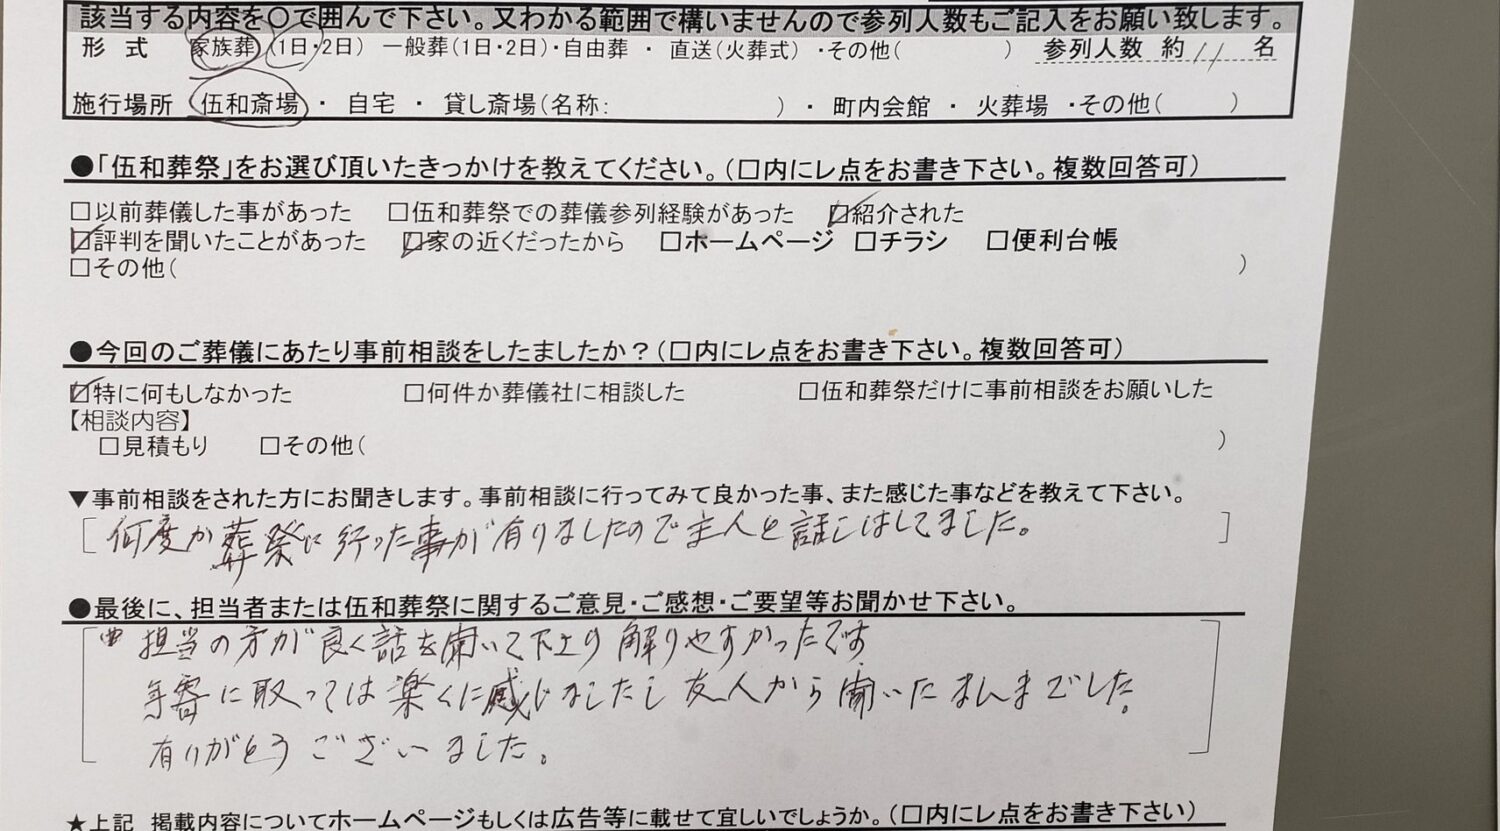 該当する内容を〇で囲んで下さい。又わかる範囲で構いませんので参列人数もご記入をお願い致します。
形 式 家族葬(1日・2日) 一般葬(1日・2日)・自由葬 ・ 直送(火葬式) ・その他( ) 参列人数 約 11 名
施行場所 伍和斎場 ・ 自宅 ・ 貸し斎場(名称: ) ・ 町内会館 ・ 火葬場 ・その他( )
●「伍和葬祭」をお選び頂いたきっかけを教えてください。(□内にレ点をお書き下さい。複数回答可)
□以前葬儀した事があった □伍和葬祭での葬儀参列経験があった ☑紹介された
☑評判を聞いたことがあった ☑家の近くだったから □ホームページ □チラシ □便利台帳
□その他( )
●今回のご葬儀にあたり事前相談をしたましたか?(□内にレ点をお書き下さい。複数回答可)
☑特に何もしなかった □何件か葬儀社に相談した □伍和葬祭だけに事前相談をお願いした
【相談内容】
□見積もり □その他( )
▼事前相談をされた方にお聞きします。事前相談に行ってみて良かった事、また感じた事などを教えて下さい。
[何度か葬祭に行った事が有りましたので主人と話しはしてました。]
●最後に、担当者または伍和葬祭に関するご意見・ご感想・ご要望等お聞かせ下さい。
担当の方が良く話を聞いて下より解りやすかったです
に取っては楽くに感じましたし友人から聞いたまんまでした。
有りがとうございました。
★上記 掲載内容についてホームページもしくは広告等に載せて宜しいでしょうか。(□内にレ点をお書き下さい)